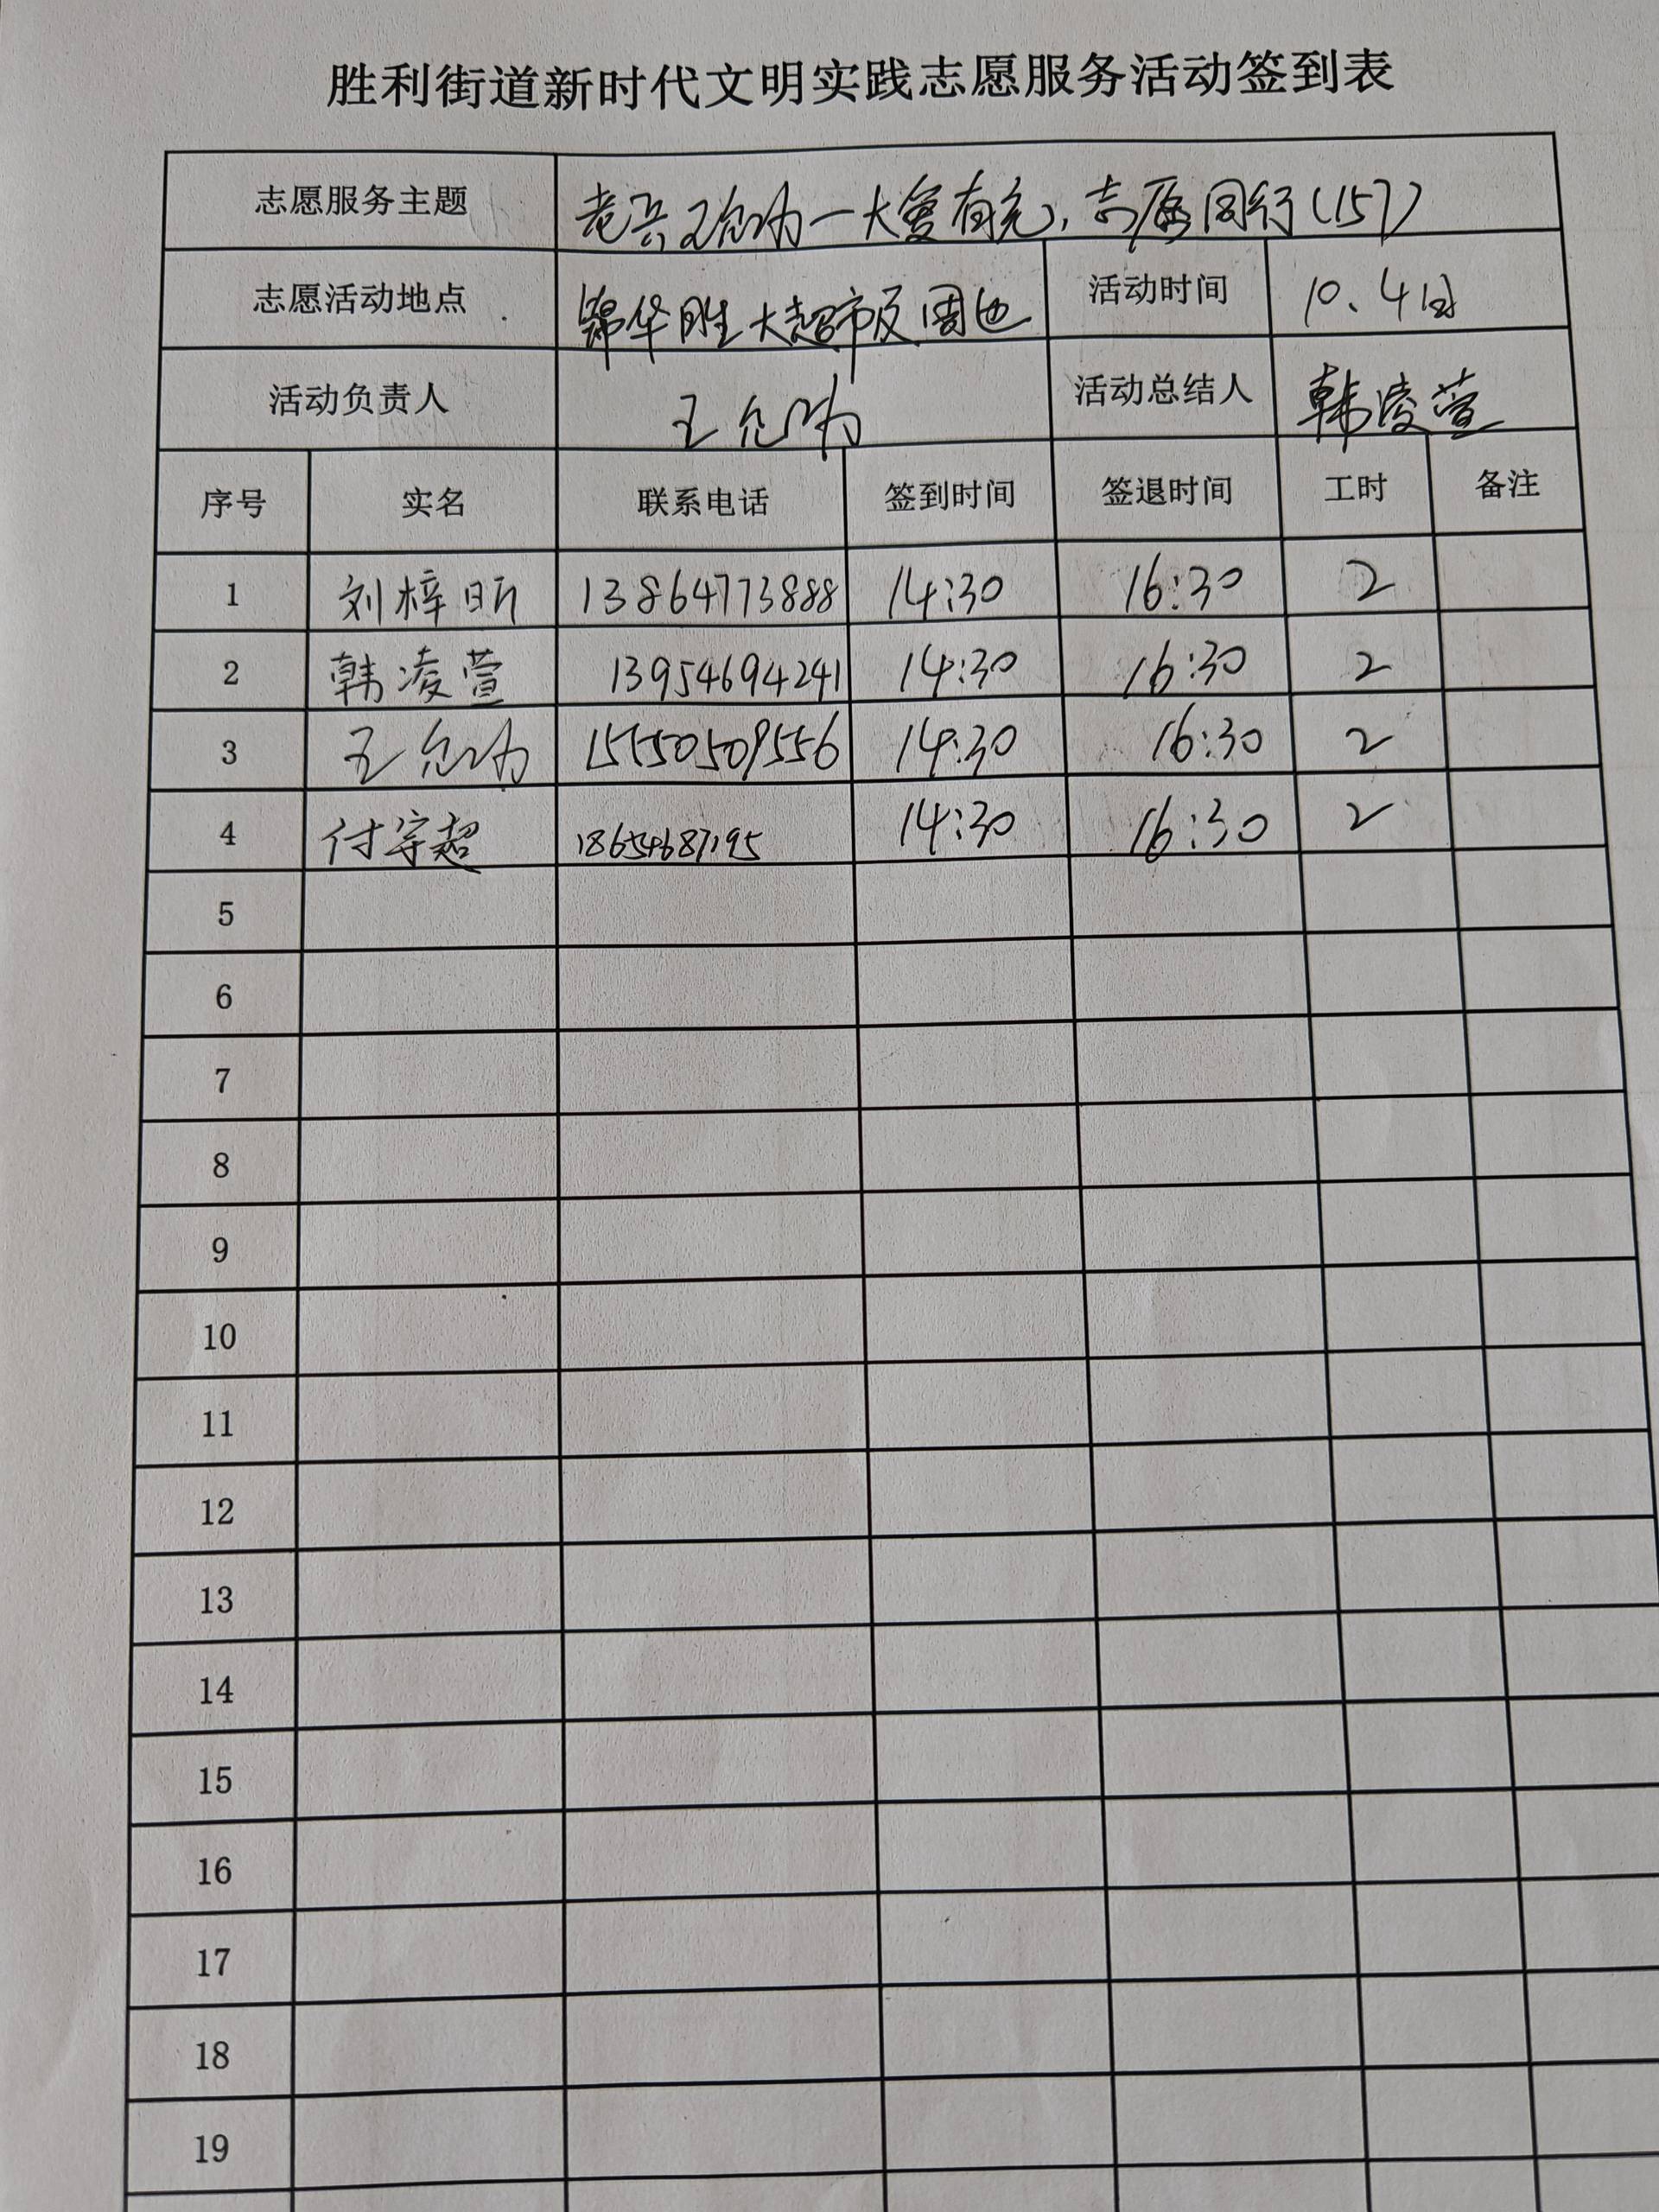 胜利街道新时代文明实践志愿服务活动签到表
志愿服务主题 老兵王允功一大爱有充，志愿同行(157)
志愿活动地点 锦华胜大超市及周边 活动时间 10.4日
活动负责人 王允功 活动总结人 韩凌萱
序号 实名 联系电话 签到时间 签退时间 工时 备注
1 刘梓昕 13864773888 14:30 16:30 2
2 韩凌萱 13954694241 14:30 16:30 2
3 王允功 15550509556 14:30 16:30 2
4 付宇超 18654687195 14:30 16:30 2
5
6
7
8
9
10
11
12
13
14
15
16
17
18
19